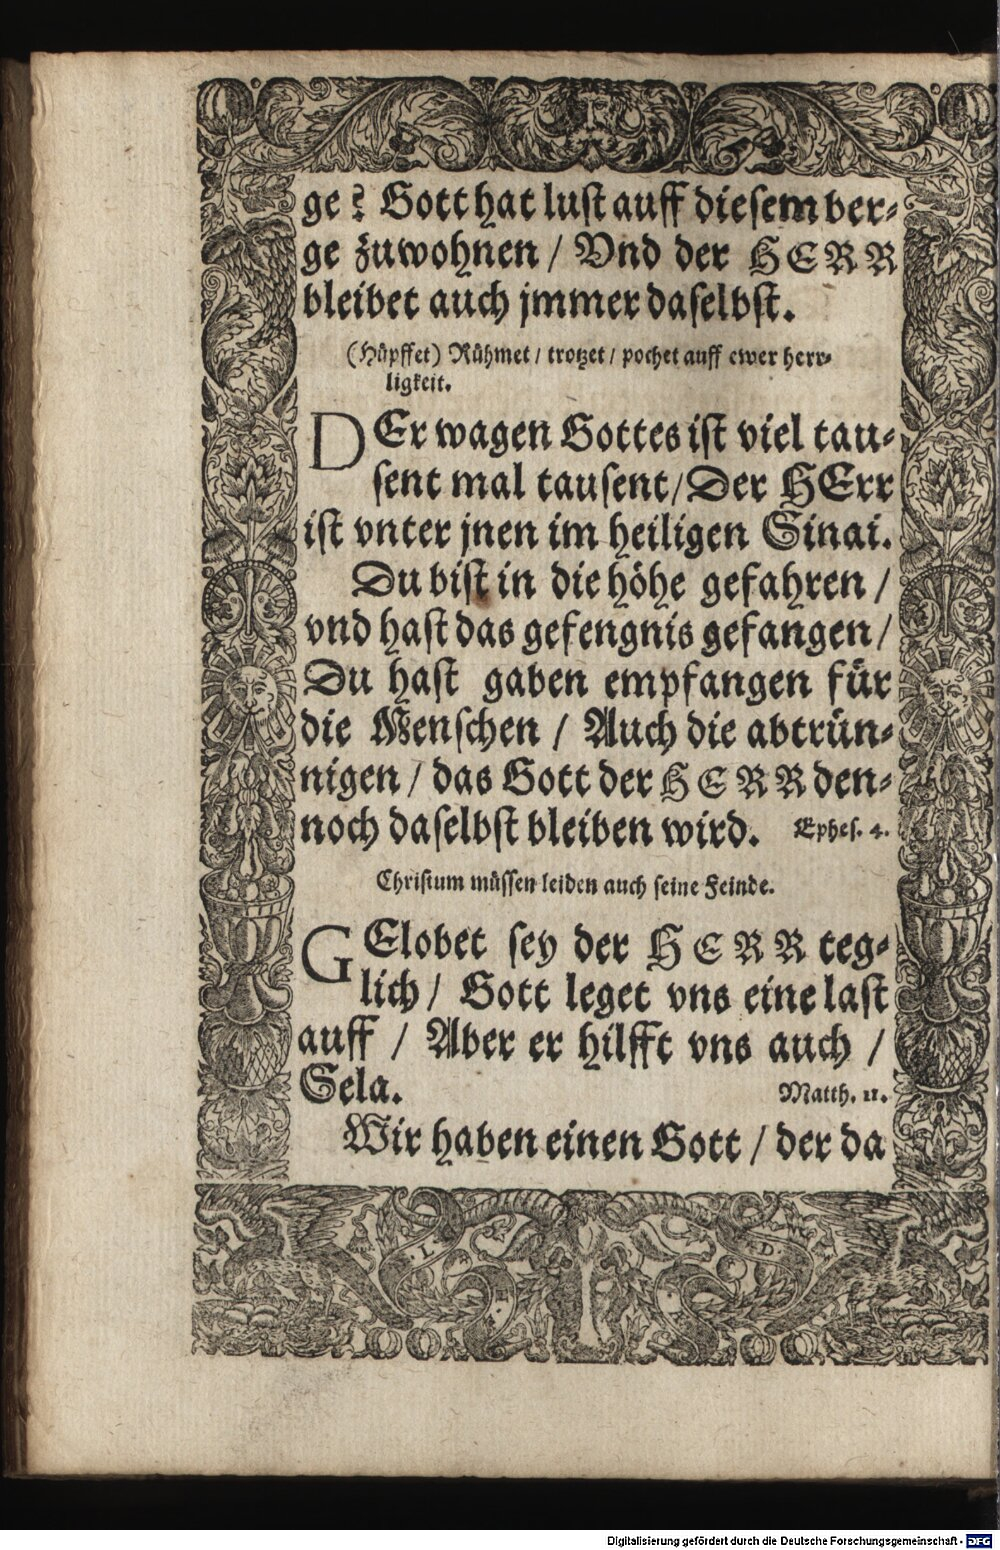 ge? Gott hat lust auff diesem ber-
ge zuwohnen / Vnd der HERR
bleibet auch jmmer daselbst.
(Hüpffet) Rühmet / trotzet / pochet auff ewer herr-
ligkeit.
DEr wagen Gottes ist viel tau-
sent mal tausent / Der HErr
ist vnter jnen im heiligen Sinai.
Du bist in die höhe gefahren /
vnd hast das gefengnis gefangen /
Du hast gaben empfangen für
die Menschen / Auch die abtrün-
nigen / das Gott der HERR den-
noch daselbst bleiben wird. Ephes. 4.
Christum müssen leiden auch seine Feinde.
GElobet sey der HERR teg-
lich / Gott leget vns eine last
auff / Aber er hilfft vns auch /
Sela. Matth. 11.
Wir haben einen Gott / der da
L D
Digitalisierung gefördert durch die Deutsche Forschungsgemeinschaft - DFG